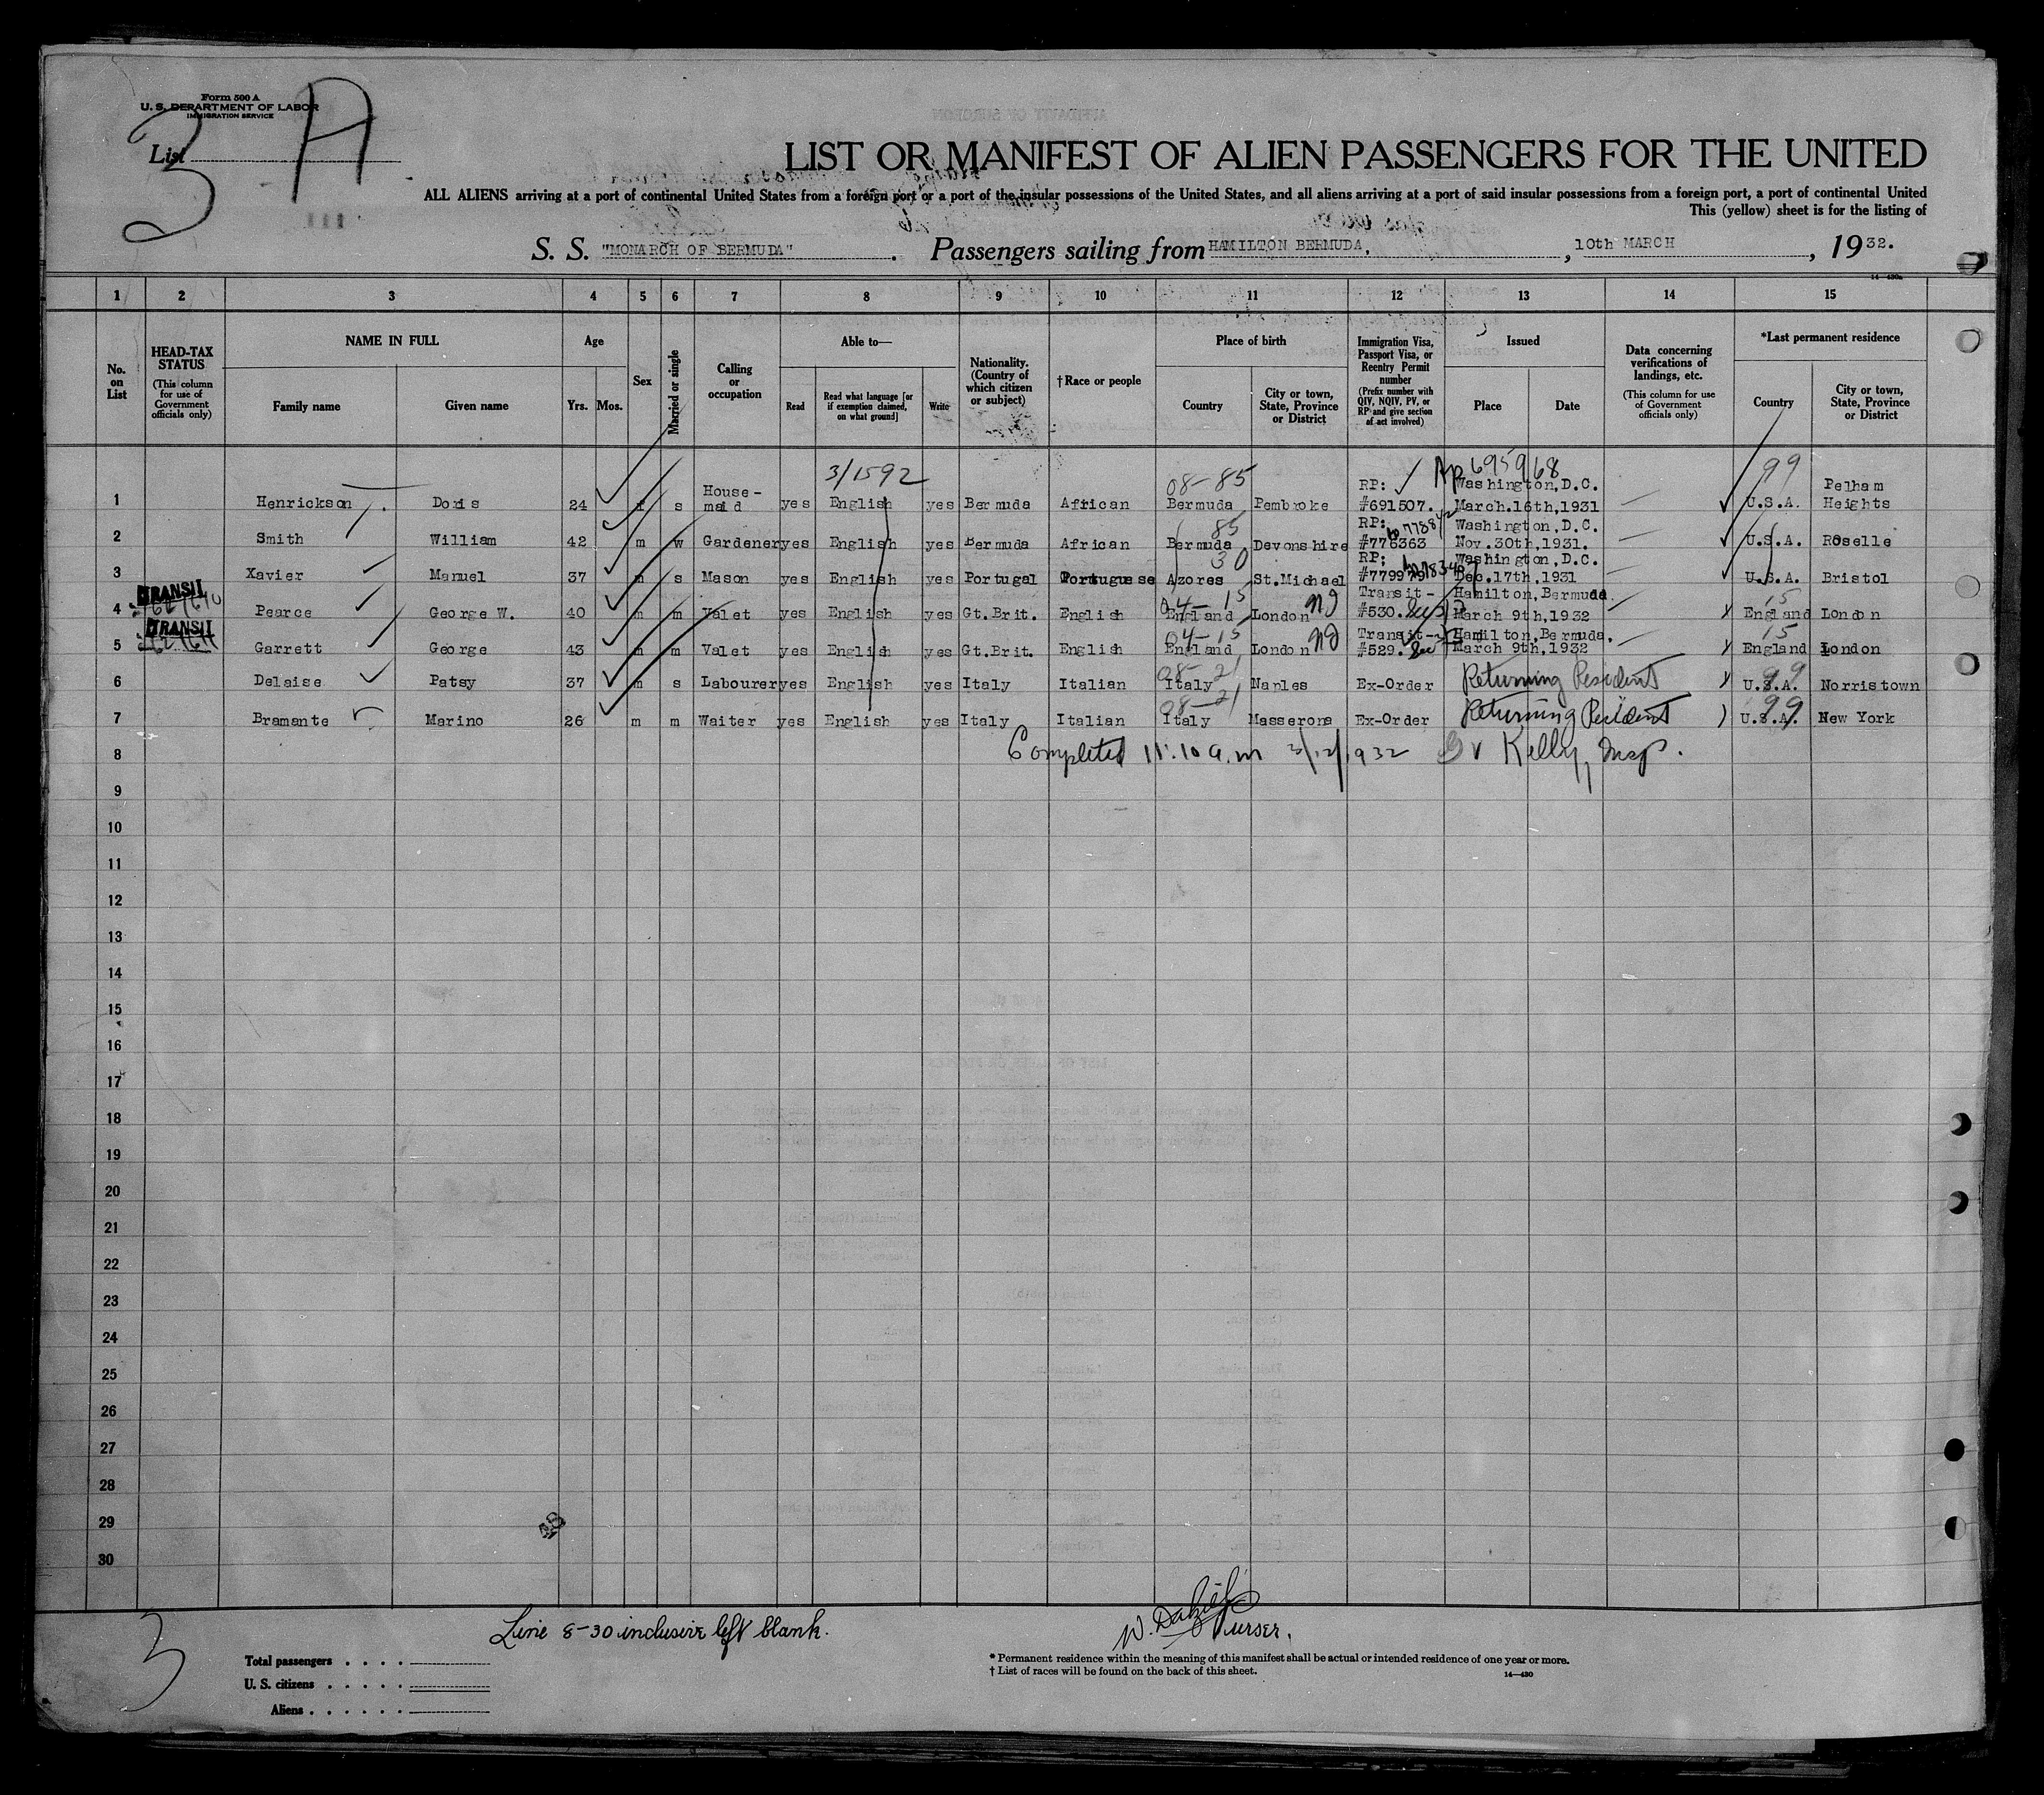 Form 500 A
U. S. DEPARTMENT OF LABOR
IMMIGRATION SERVICE
List
3 H
LIST OR MANIFEST OF ALIEN PASSENGERS FOR THE UNITED
ALL ALIENS arriving at a port of continental United States from a foreign port or a port of the insular possessions of the United States, and all aliens arriving at a port of said insular possessions from a foreign port, a port of continental United
This (yellow) sheet is for the listing of
S. S. "MONARCH OF BERMUDA". Passengers sailing from HAMILTON BERMUDA, , 10th MARCH , 1932.
14—430a
1 2 3 4 5 6 7 8 9 10 11 12 13 14 15
No. on List
HEAD-TAX STATUS (This column for use of Government officials only)
NAME IN FULL
Family name Given name
Age
Yrs. Mos.
Sex
Married or single
Calling or occupation
Able to—
Read Read what language [or if exemption claimed, on what ground] Write
Nationality. (Country of which citizen or subject)
† Race or people
Place of birth
Country City or town, State, Province or District
Immigration Visa, Passport Visa, or Reentry Permit number (Prefix number with QIV, NQIV, PV, or RP and give section of act involved)
Issued
Place Date
Data concerning verifications of landings, etc. (This column for use of Government officials only)
*Last permanent residence
Country City or town, State, Province or District
3/1592 08-85 695968 99
1 Henrickson Doris 24 f s House-maid yes English yes Bermuda African Bermuda Pembroke RP: #691507. Washington, D.C. March.16th,1931 U.S.A. Pelham Heights
85
2 Smith William 42 m w Gardener yes English yes Bermuda African Bermuda Devonshire RP: #776363 Washington, D.C. Nov.30th,1931. U.S.A. Roselle
30
3 Xavier Manuel 37 m s Mason yes English yes Portugal Portuguese Azores St.Michael RP: #779979 Washington, D.C. Dec.17th,1931 U.S.A. Bristol
TRANSIT 04-15 15
4 Pearce George W. 40 m m Valet yes English yes Gt.Brit. English England London Transit- #530. Hamilton, Bermuda. March 9th,1932 England London
TRANSIT 04-15 15
5 Garrett George 43 m m Valet yes English yes Gt.Brit. English England London Transit- #529. Hamilton, Bermuda. March 9th,1932 England London
08-21 99
6 Delaise Patsy 37 m s Labourer yes English yes Italy Italian Italy Naples Ex-Order Returning Resident U.S.A. Norristown
08-21 99
7 Bramante Marino 26 m m Waiter yes English yes Italy Italian Italy Masserons Ex-Order Returning Resident U.S.A. New York
8 Completed 11:10 a.m 3/12/1932 Kelly, Insp.
9
10
11
12
13
14
15
16
17
18
19
20
21
22
23
24
25
26
27
28
29
30
Line 8-30 inclusive left blank.
Purser.
3
Total passengers
U. S. citizens
Aliens
* Permanent residence within the meaning of this manifest shall be actual or intended residence of one year or more.
† List of races will be found on the back of this sheet.
14—430